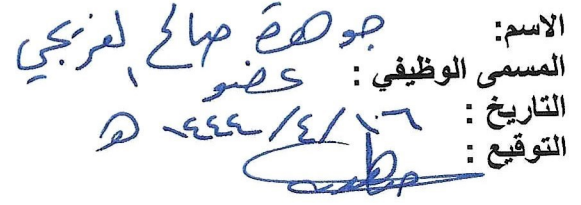 الاسم: جوهرة صالح العريجي
المسمى الوظيفي : عضو
التاريخ : ١٤٤٤/٤/٠٦ هـ
التوقيع :